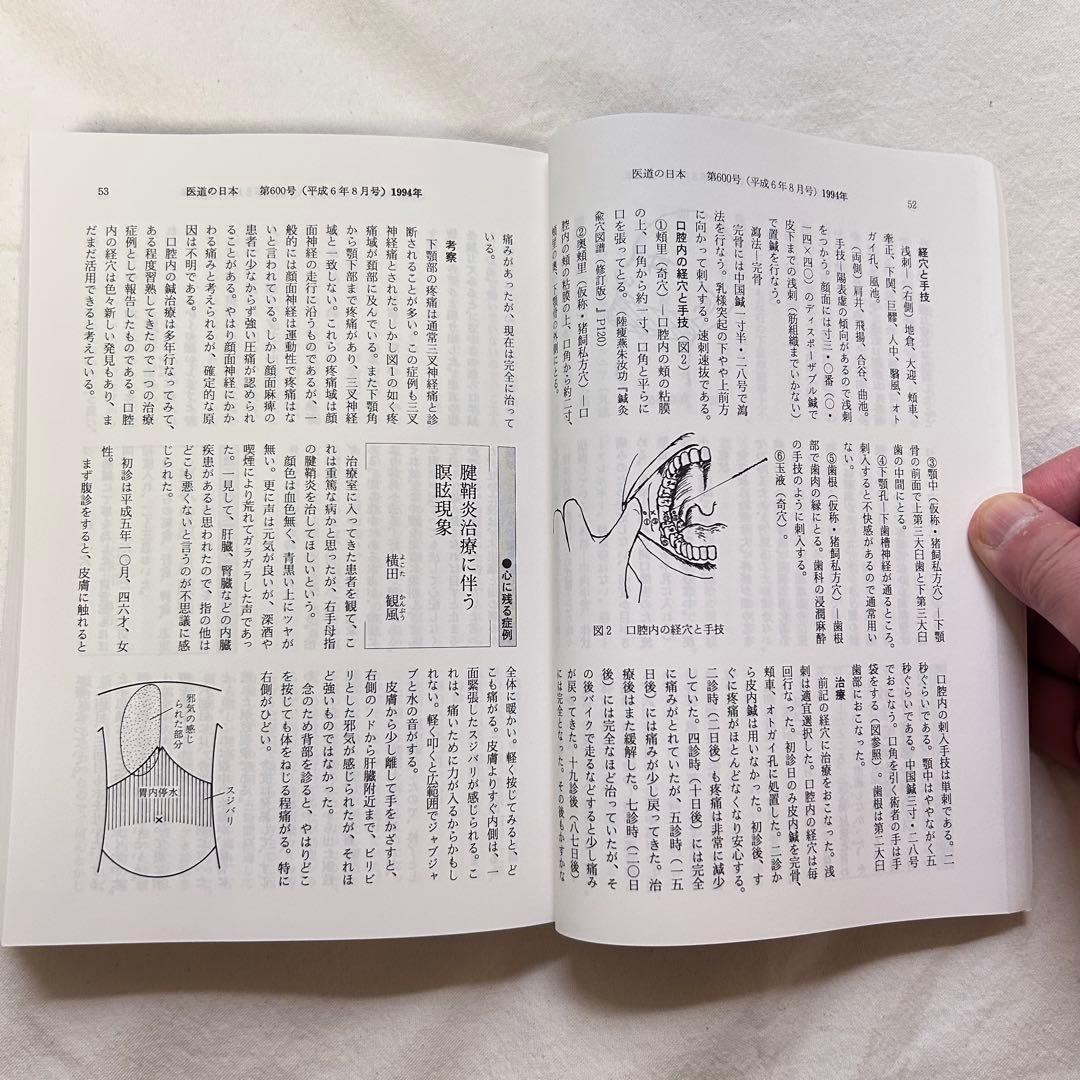 医道の日本　第600号（平成６年８月号）1994年
52
経穴と手技
浅刺―（右側）地倉、大迎、頬車、
牽正、下関、巨髎、人中、翳風、オト
ガイ孔、風池。
（両側）肩井、飛揚、合谷、曲池。
手技、陽表虚の傾向があるので浅刺
をつかう。顔面には寸三・〇番（〇・
一四×四〇）のディスポーザブル鍼で
皮下までの浅刺（筋組織までいかない）
で置鍼を行なう。
瀉法―完骨
完骨には中国鍼一寸半・二八号で瀉
法を行なう。乳様突起の下やや上前方
に向かって刺入する。速刺速抜である。
口腔内の経穴と手技（図２）
①頬里（奇穴）―口腔内の頬の粘膜
の上、口角から約一寸、口角と平らに
口を張ってとる。（陸瘦燕朱汝功『鍼灸
兪穴図譜（修訂版』P120）
②奥頬里（仮称・猪飼私方穴）―口
腔内の頬の粘膜の上、口角から約二寸、
頬里の奥、下顎骨の外側にとる。
③顎中（仮称・猪飼私方穴）―下顎
骨の前面で上第三大臼歯と下第三大臼
歯の中間にとる。
④下顎孔―下歯槽神経が通るところ。
刺入すると不快感があるので通常用い
ない。
⑤歯根（仮称・猪飼私方穴）―歯根
部で歯肉の縁にとる。歯科の浸潤麻酔
の手技のように刺入する。
⑥玉液（奇穴）。
図２　口腔内の経穴と手技
口腔内の刺入手技は単刺である。二
秒ぐらいである。顎中はややながく五
秒ぐらいである。中国鍼三寸・二八号
でおこなう。口角を引く術者の手は手
袋をする（図参照）。歯根は第二大臼
歯部におこなった。
治療
前記の経穴に治療をおこなった。浅
刺は適宜選択した。口腔内の経穴は毎
回行なった。初診日のみ皮内鍼を完骨、
頬車、オトガイ孔に処置した。二診か
ら皮内鍼は用いなかった。初診後、す
ぐに疼痛がほとんどなくなり安心する。
二診時（二日後）も疼痛は非常に減少
していた。四診時（十日後）には完全
に痛みがとれていたが、五診時（一五
日後）には痛みが少し戻ってきた。治
療後はまた緩解した。七診時（二〇日
後）には完全なほど治っていたが、そ
の後バイクで走るなどすると少し痛み
が戻ってきた。十九診後（八七日後）
には完全となった。その後もかすかな
53
医道の日本　第600号（平成６年８月号）1994年
痛みがあったが、現在は完全に治って
いる。
考察
下顎部の疼痛は通常三叉神経痛と診
断されることが多い。この症例も三叉
神経痛とされた。しかし図１の如く疼
痛域が頚部に及んでいる。また下顎角
から顎下部まで疼痛があり、三叉神経
域と一致しない。これらの疼痛域は顔
面神経の走行に沿うものであるが、一
般的には顔面神経は運動性で疼痛はな
いと言われている。しかし顔面麻痺の
患者に少なからず強い圧痛が認められ
ることがある。やはり顔面神経にかか
わる痛みと考えられるが、確定的な原
因は不明である。
口腔内の鍼治療は多年行なってみて、
ある程度習熟してきたので一つの治療
症例として報告したものである。口腔
内の経穴は色々新しい発見もあり、ま
だまだ活用できると考えている。
●心に残る症例
腱鞘炎治療に伴う
瞑眩現象
横田　観風
よこた　かんぷう
治療室に入ってきた患者を観て、こ
れは重篤な病かと思ったが、右手母指
の腱鞘炎を治してほしいという。
顔色は血色無く、青黒い上にツヤが
無い。更に声は元気が良いが、深酒や
喫煙により荒れてガラガラした声であっ
た。一見して、肝臓、腎臓などの内臓
疾患があると思われたので、指の他は
どこも悪くないと言うのが不思議に感
じられた。
初診は平成五年一〇月、四六才、女
性。
まず腹診をすると、皮膚に触れると
全体に暖かい。軽く按じてみると、ど
こも痛がる。皮膚よりすぐ内側は、一
面緊張したスジバリが感じられる。こ
れは、痛いために力が入るからかもし
れない。軽く叩くと広範囲でジャブジャ
ブと水の音がする。
皮膚から少し離して手をかざすと、
右側のノドから肝臓附近まで、ビリビ
リとした邪気が感じられたが、それほ
ど強いものではなかった。
念のため背部を診ると、やはりどこ
を按じても体をねじる程痛がる。特に
右側がひどい。
邪気の感じ
られた部分
胃内停水
スジバリ